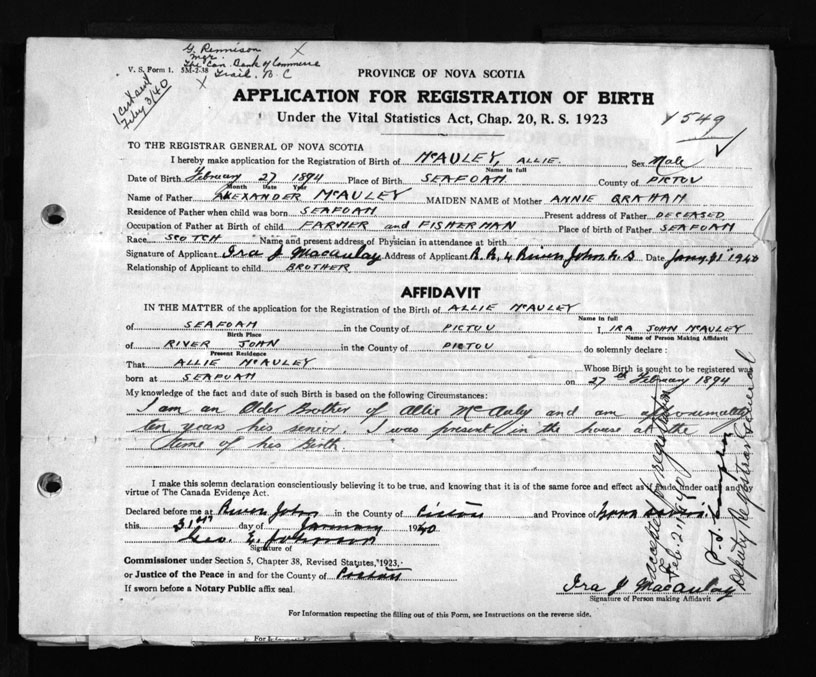 G. Rennison X
Mgr.
The Can. Bank of Commerce
V. S. Form 1. 5M-2-38 X Trail, B C
1 cert sent
Feby 3/40
PROVINCE OF NOVA SCOTIA
APPLICATION FOR REGISTRATION OF BIRTH
Under the Vital Statistics Act, Chap. 20, R. S. 1923
549
TO THE REGISTRAR GENERAL OF NOVA SCOTIA
I hereby make application for the Registration of Birth of McAULEY, ALLIE. Sex Male
Name in full
Date of Birth February 27 1894 Place of Birth SEAFOAM County of PICTOU
Month Date Year
Name of Father ALEXANDER McAULEY MAIDEN NAME of Mother ANNIE GRAHAM
Residence of Father when child was born SEAFOAM Present address of Father DECEASED
Occupation of Father at Birth of child FARMER and FISHERMAN Place of birth of Father SEAFOAM
Race SCOTCH Name and present address of Physician in attendance at birth
Signature of Applicant Ira J Macaulay Address of Applicant R.R. 4 River John N.S Date Jany. 31st 1940
Relationship of Applicant to child BROTHER
AFFIDAVIT
IN THE MATTER of the application for the Registration of the Birth of ALLIE McAULEY
Name in full
of SEAFOAM in the County of PICTOU I, IRA JOHN McAULEY
Birth Place Name of Person Making Affidavit
of RIVER JOHN in the County of PICTOU do solemnly declare :
Present Residence
That ALLIE McAULEY Whose Birth is sought to be registered was
born at SEAFOAM on 27th February 1894
My knowledge of the fact and date of such Birth is based on the following Circumstances:
I am an Older Brother of Allie McAuly and am approximately
ten years his senior. I was present in the house at the
time of his Birth.
I make this solemn declaration conscientiously believing it to be true, and knowing that it is of the same force and effect as if made under oath and by
virtue of The Canada Evidence Act.
Declared before me at River John in the County of Pictou and Province of Nova Scotia
this 31st day of January 1940
Geo. E. Johnson
Signature of
Commissioner under Section 5, Chapter 38, Revised Statutes, 1923,
or Justice of the Peace in and for the County of Pictou
If sworn before a Notary Public affix seal.
Ira J Macaulay
Signature of Person making Affidavit
For Information respecting the filling out of this Form, see Instructions on the reverse side.
accepted for registration
Feb. 2, 1940
Deputy Registrar General